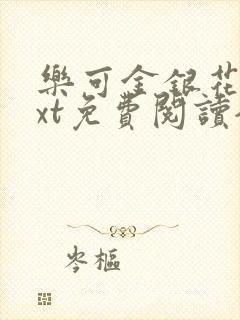 樂可金銀花
xt免費閱讀
岑樞